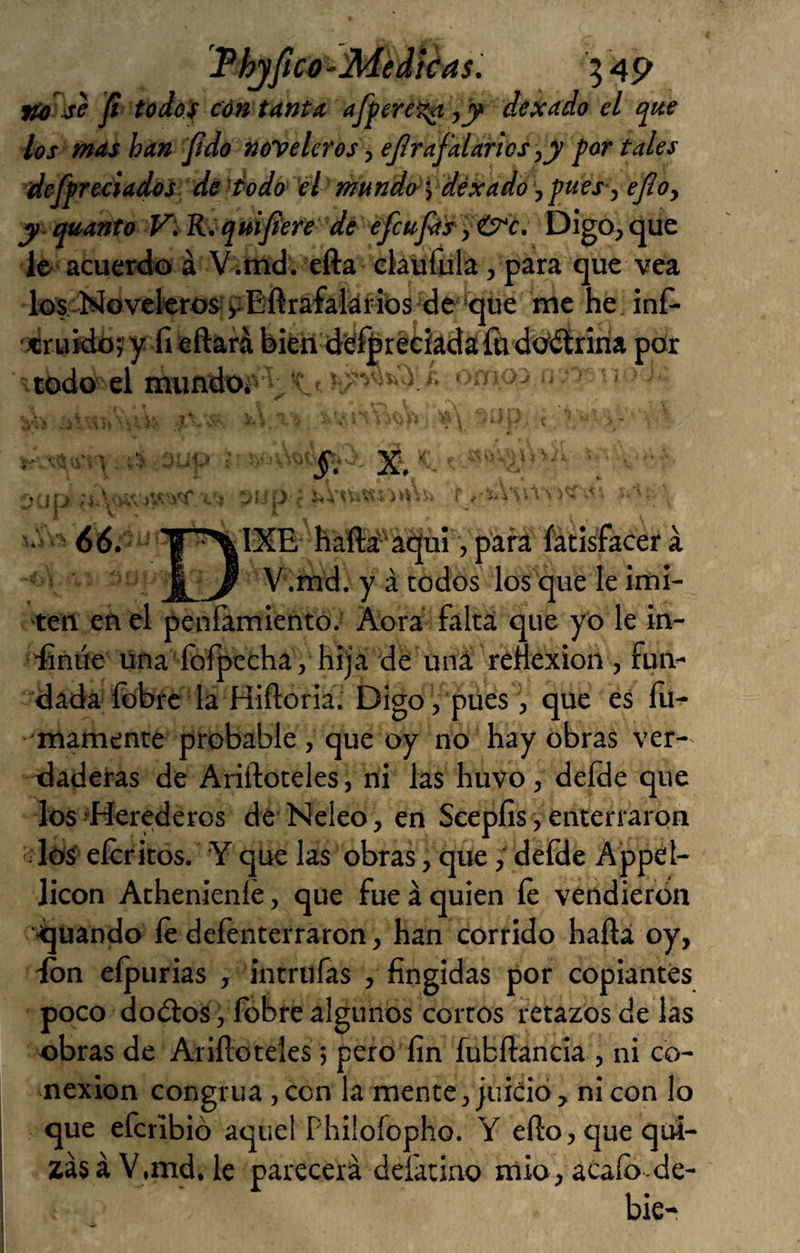 Phyſico-Medicas. 349
no sè ſi todos con tanta aſpereza, y dexado el que
los mas han ſido noveleros, eſtrafalarios, y por tales
deſpreciados de todo el mundo; dexado, pues, eſto,
y quanto V. R. quiſiere de eſcuſas, &c. Digo, que
le acuerdo à V.md. eſta clauſula, para que vea
los Noveleros, Eſtrafalarios de que me he inſ-
truido; y ſi eſtarà bien deſpreciada ſu doctrina por
todo el mundo.
§. X.
66. DIXE haſta aqui, para ſatisfacer à
V.md. y à todos los que le imi-
ten en el penſamiento. Aora falta que yo le in-
ſinùe una ſoſpecha, hija de una reflexion, fun-
dada ſobre la Hiſtoria. Digo, pues, que es ſu-
mamente probable, que oy no hay obras ver-
daderas de Ariſtoteles, ni las huvo, deſde que
los Herederos de Neleo, en Scepſis, enterraron
los eſcritos. Y que las obras, que, deſde Appel-
licon Athenienſe, que fue à quien ſe vendieron
quando ſe deſenterraron, han corrido haſta oy,
ſon eſpurias, intruſas, fingidas por copiantes
poco doctos, ſobre algunos cortos retazos de las
obras de Ariſtoteles; pero ſin ſubſtancia, ni co-
nexion congrua, con la mente, juicio, ni con lo
que eſcribiò aquel Philoſopho. Y eſto, que qui-
zàs à V.md. le parecerà deſatino mio, acaſo de-
bie-